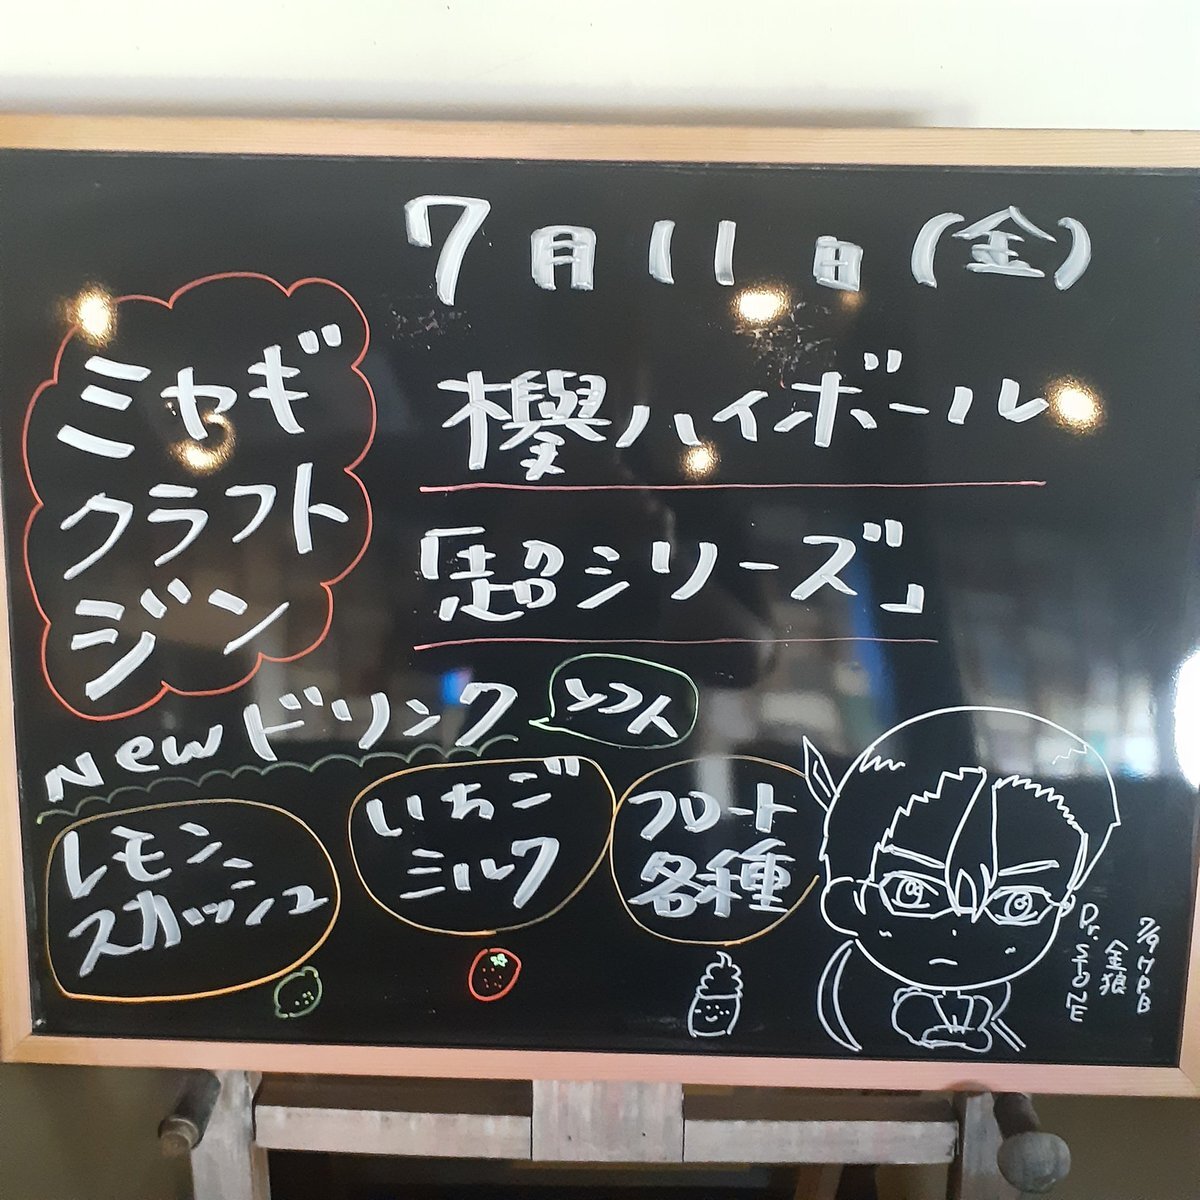 7月11日(金)
ミヤギ
クラフト
ジン
欅ハイボール
「超シリーズ」
Newドリンク
ソフト
レモン
スカッシュ
いちご
ミルク
フロート
各種
7/9 HPB
金狼
Dr.STONE